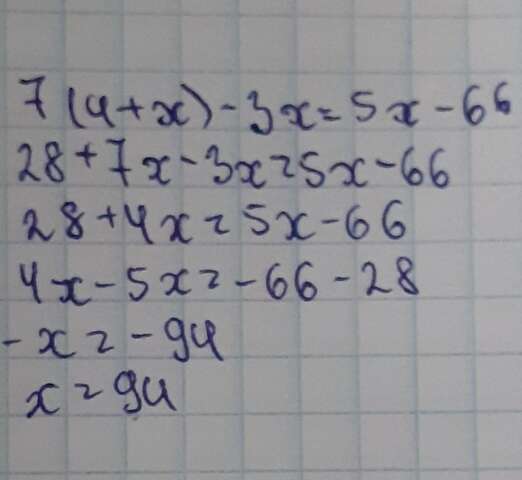 7(4+x)-3x=5x-66
28+7x-3x=5x-66
28+4x=5x-66
4x-5x=-66-28
-x=-94
x=94